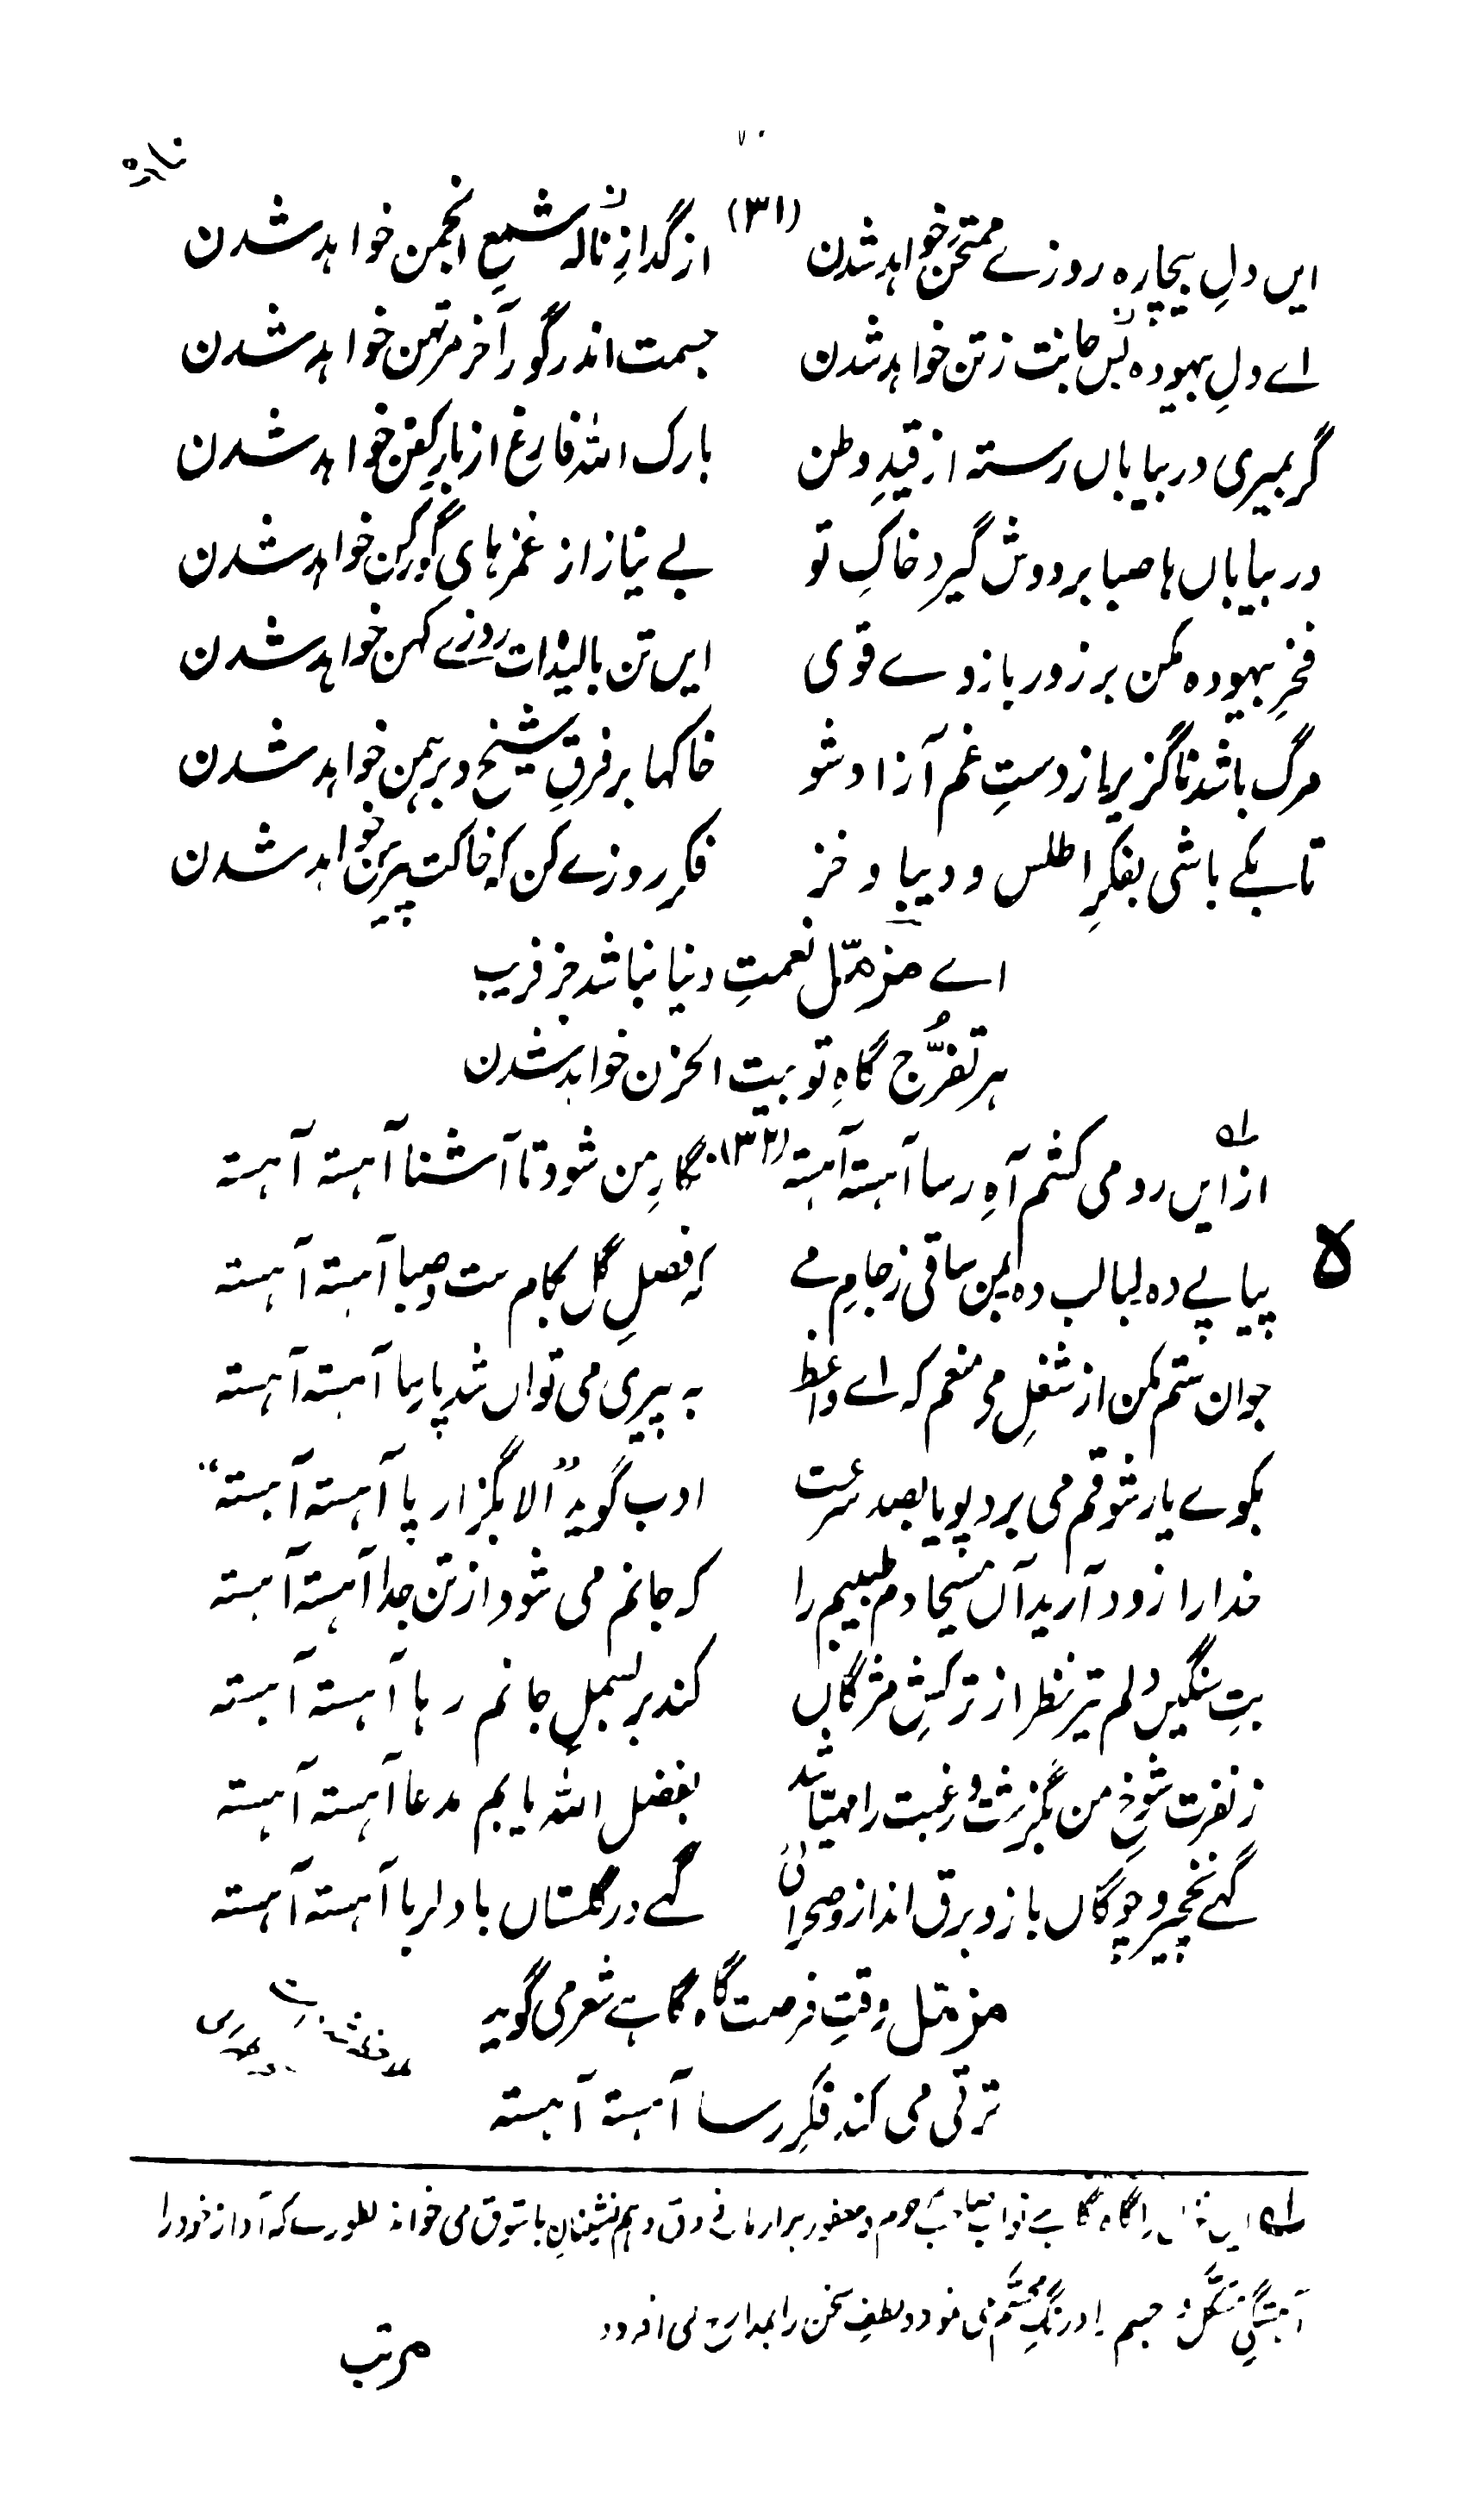 (۳۱)
ایں دلِ بیچارہ روزے ممتحن خواہد شدن از گدازِ نالہ شمعِ انجمن خواہد شدن
اے دلِ بیہودہ بس جانت ز تن خواہد شدن جسمت اندر گور آخر مرتہن خواہد شدن
گر بمیری در بیاباں رستہ از قیدِ وطن بارک اللہ فارغ از بارِ کفن خواہد شدن
در بیاباں ہا صبا بر دوش گیرد خاکِ تو بے نیاز از غمزہای گورکن خواہد شدن
فخرِ بیہودہ مکن بر زور بازوے قوی ایں تن بالیدہ ات روزے کہن خواہد شدن
مرگ باشد ناگزیر از دستِ غم آزاد شو خاکہا بر فرقِ شیخ و برہمن خواہد شدن
تا بکے باشی بفکرِ اطلس و دیبا و خز فکرِ روزے کن کہ خاکت پیرہن خواہد شدن
اے مزمّل نعمتِ دنیا نباشد جز فریب
ہر تفرّج گاہِ تو بیت الحزن خواہد شدن
(۳۲)
ازاں ایں رو می کشم آہِ رسا آہستہ آہستہ نگارِ من شود تا آشنا آہستہ آہستہ
پیاپے دہ لبالب دہ بمن ساقی ز جامِ مے کہ فصلِ گل بکام ست و صبا آہستہ آہستہ
جوان ہستم مکن از شغلِ می منعم کہ اے واعظ بہ پیری می تواں شد پارسا آہستہ آہستہ
بکوے یار شوقم می برد پویا بصد سرعت ادب گوید "الا بگزار پا آہستہ آہستہ"
خدارا زود آرید آں مسیحا دم طبیبم را کہ جانم می شود از تن جدا آہستہ آہستہ
بتِ سنگیں دلم تیرِ نظر از ترکشِ مژگاں کند بر بسملِ جانم رہا آہستہ آہستہ
ز نفرت شوخِ من بگزشت و رغبت را مہیا شد بفضل اللہ یابم مدعا آہستہ آہستہ
گہے نخچیر و چوگاں باز و برق انداز و صحرائی گہے در گلستاں با دلربا آہستہ آہستہ
مزمّل وقتِ فرصت گاہ گاہے شعر می گوید
ترقی می کند فکرِ رسا آہستہ آہستہ
ایں را گاہ گاہے بحضور ذوق و ہم نشینانِ با شوق می خواند بطورے کہ آواز خود را
آہستگی جسم در رنگِ می نمود و لطفِ سخن را بداں می افزود
مرتب